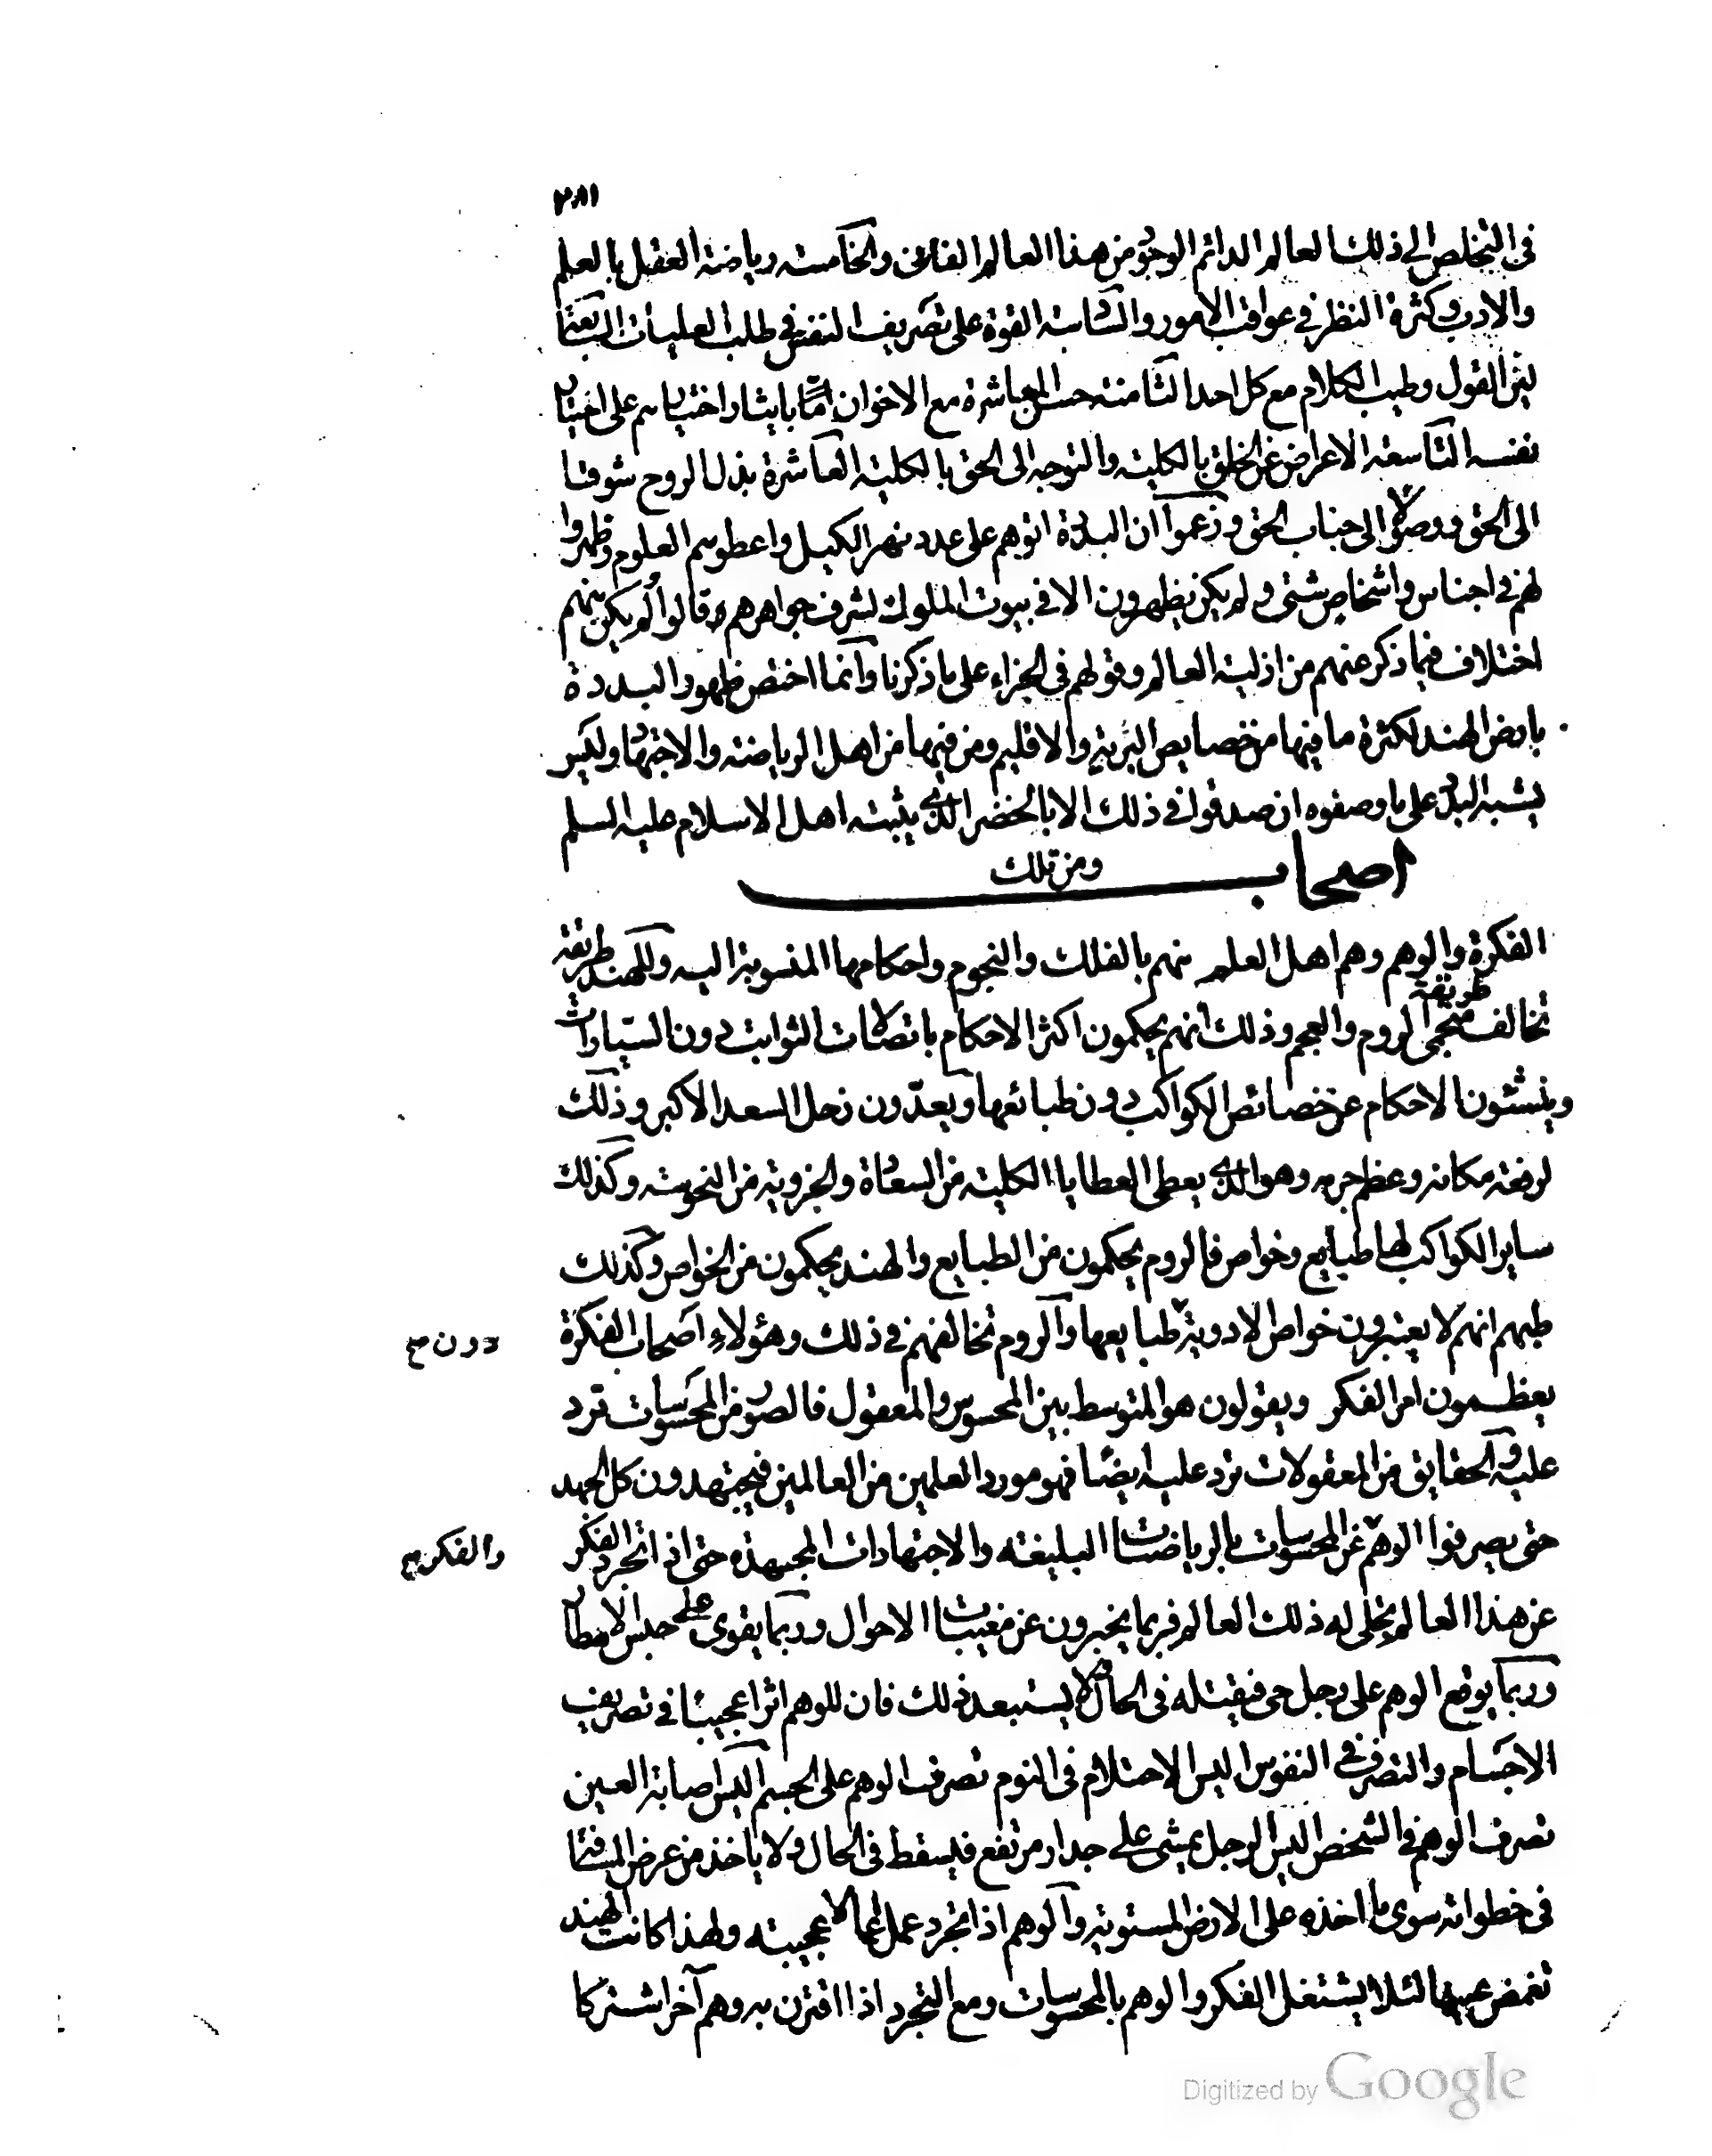 ٢٨١
فى التخلص الى ذلك العالم الدائم الوجود من هذا العالم الفانى والخامسة رياضة العقل بالعلم
والادب وكثرة النظر فى عواقب الامور والسادسة القوة على تصريف النفس فى طلب العليات السابعة
لين القول وطيب الكلام مع كل احد الثامنة حسن المعاشرة مع الاخوان بايثار اختيارهم على اختيار
نفسه التاسعة الاعراض عن الخلق بالكلية والتوجه الى الحق بالكلية العاشرة بذل الروح شوقا
الى الحق ووصولا الى جناب الحق وزعموا ان البددة اتوهم على عدد نهر الكيل واعطوهم العلوم وظهروا
لهم فى اجناس واشخاص شتى ولم يكن يظهرون الا فى بيوت الملوك لشرف جواهرهم وقالوا لم يكن بينهم
اختلاف فيما ذكر عنهم من ازلية العالم وقولهم فى الجزاء على ما ذكرنا وانما اختص ظهور البددة
بارض الهند لكثرة ما فيها من خصايص البرية والاقليم ومن فيها من اهل الرياضة والاجتهاد وليس
يشبه البد على ما وصفوه ان صدقوا فى ذلك الا بالخضر الذى يثبته اهل الاسلام عليه السلم
ومن تلك
اصحاب
الفكرة والوهم وهم اهل العلم منهم بالفلك والنجوم واحكامها المنسوبة اليه وللهند طريقة
طريقة
تخالف منجمى الروم والعجم وذلك انهم يحكمون اكثر الاحكام باتصالات الثوابت دون السيارات
وينشئون الاحكام عن خصائص الكواكب دون طبائعها ويعدّون زحل السعد الاكبر وذلك
لرفعة مكانه وعظم جرمه وهو الذى يعطى العطايا الكلية من السعادة والجزوية من النحوسة وكذلك
ساير الكواكب لها طبايع وخواص فالروم يحكمون من الطبايع والهند يحكمون من الخواص وكذلك
طبهم انهم لا يعتبرون خواص الادوية طبايعها والروم تخالفهم فى ذلك وهؤلاء اصحاب الفكرة
دون صح
يعظمون امر الفكر ويقولون هو المتوسط بين المحسوس والمعقول فالصور من المحسوسات ترد
عليه والحقايق من المعقولات ترد عليه ايضا فهو مورد العلمين من العالمين فيجتهدون كل الجهد
حتى يصرفوا الوهم عن المحسوسات بالرياضات البليغة والاجتهادات المجهدة حتى اذا تجرد الفكر
والفكر صح
عن هذا العالم تجلى له ذلك العالم فربما يخبرون عن مغيبات الاحوال وربما يقوى على حبس الامطار
وربما يوقع الوهم على رجل حى فيقتله فى الحال ولا يستبعد ذلك فان للوهم اثرا عجيبا فى تصريف
الاجسام والتصرف فى النفوس اليس الاحتلام فى النوم تصرف الوهم على الجسم اليس اصابة العين
تصرف الوهم فى الشخص اليس الرجل يمشى على جدار مرتفع فيسقط فى الحال ولا ياخذ من عرض المسافة
فى خطواته سوى ما اخذه على الارض المستوية والوهم اذا تجرد عمل اعمالا عجيبة ولهذا كانت الهند
تغمض عينها لئلا يشتغل الفكر والوهم بالمحسوسات ومع التجرد اذا اقترن به وهم آخر اشتركا
Digitized by Google